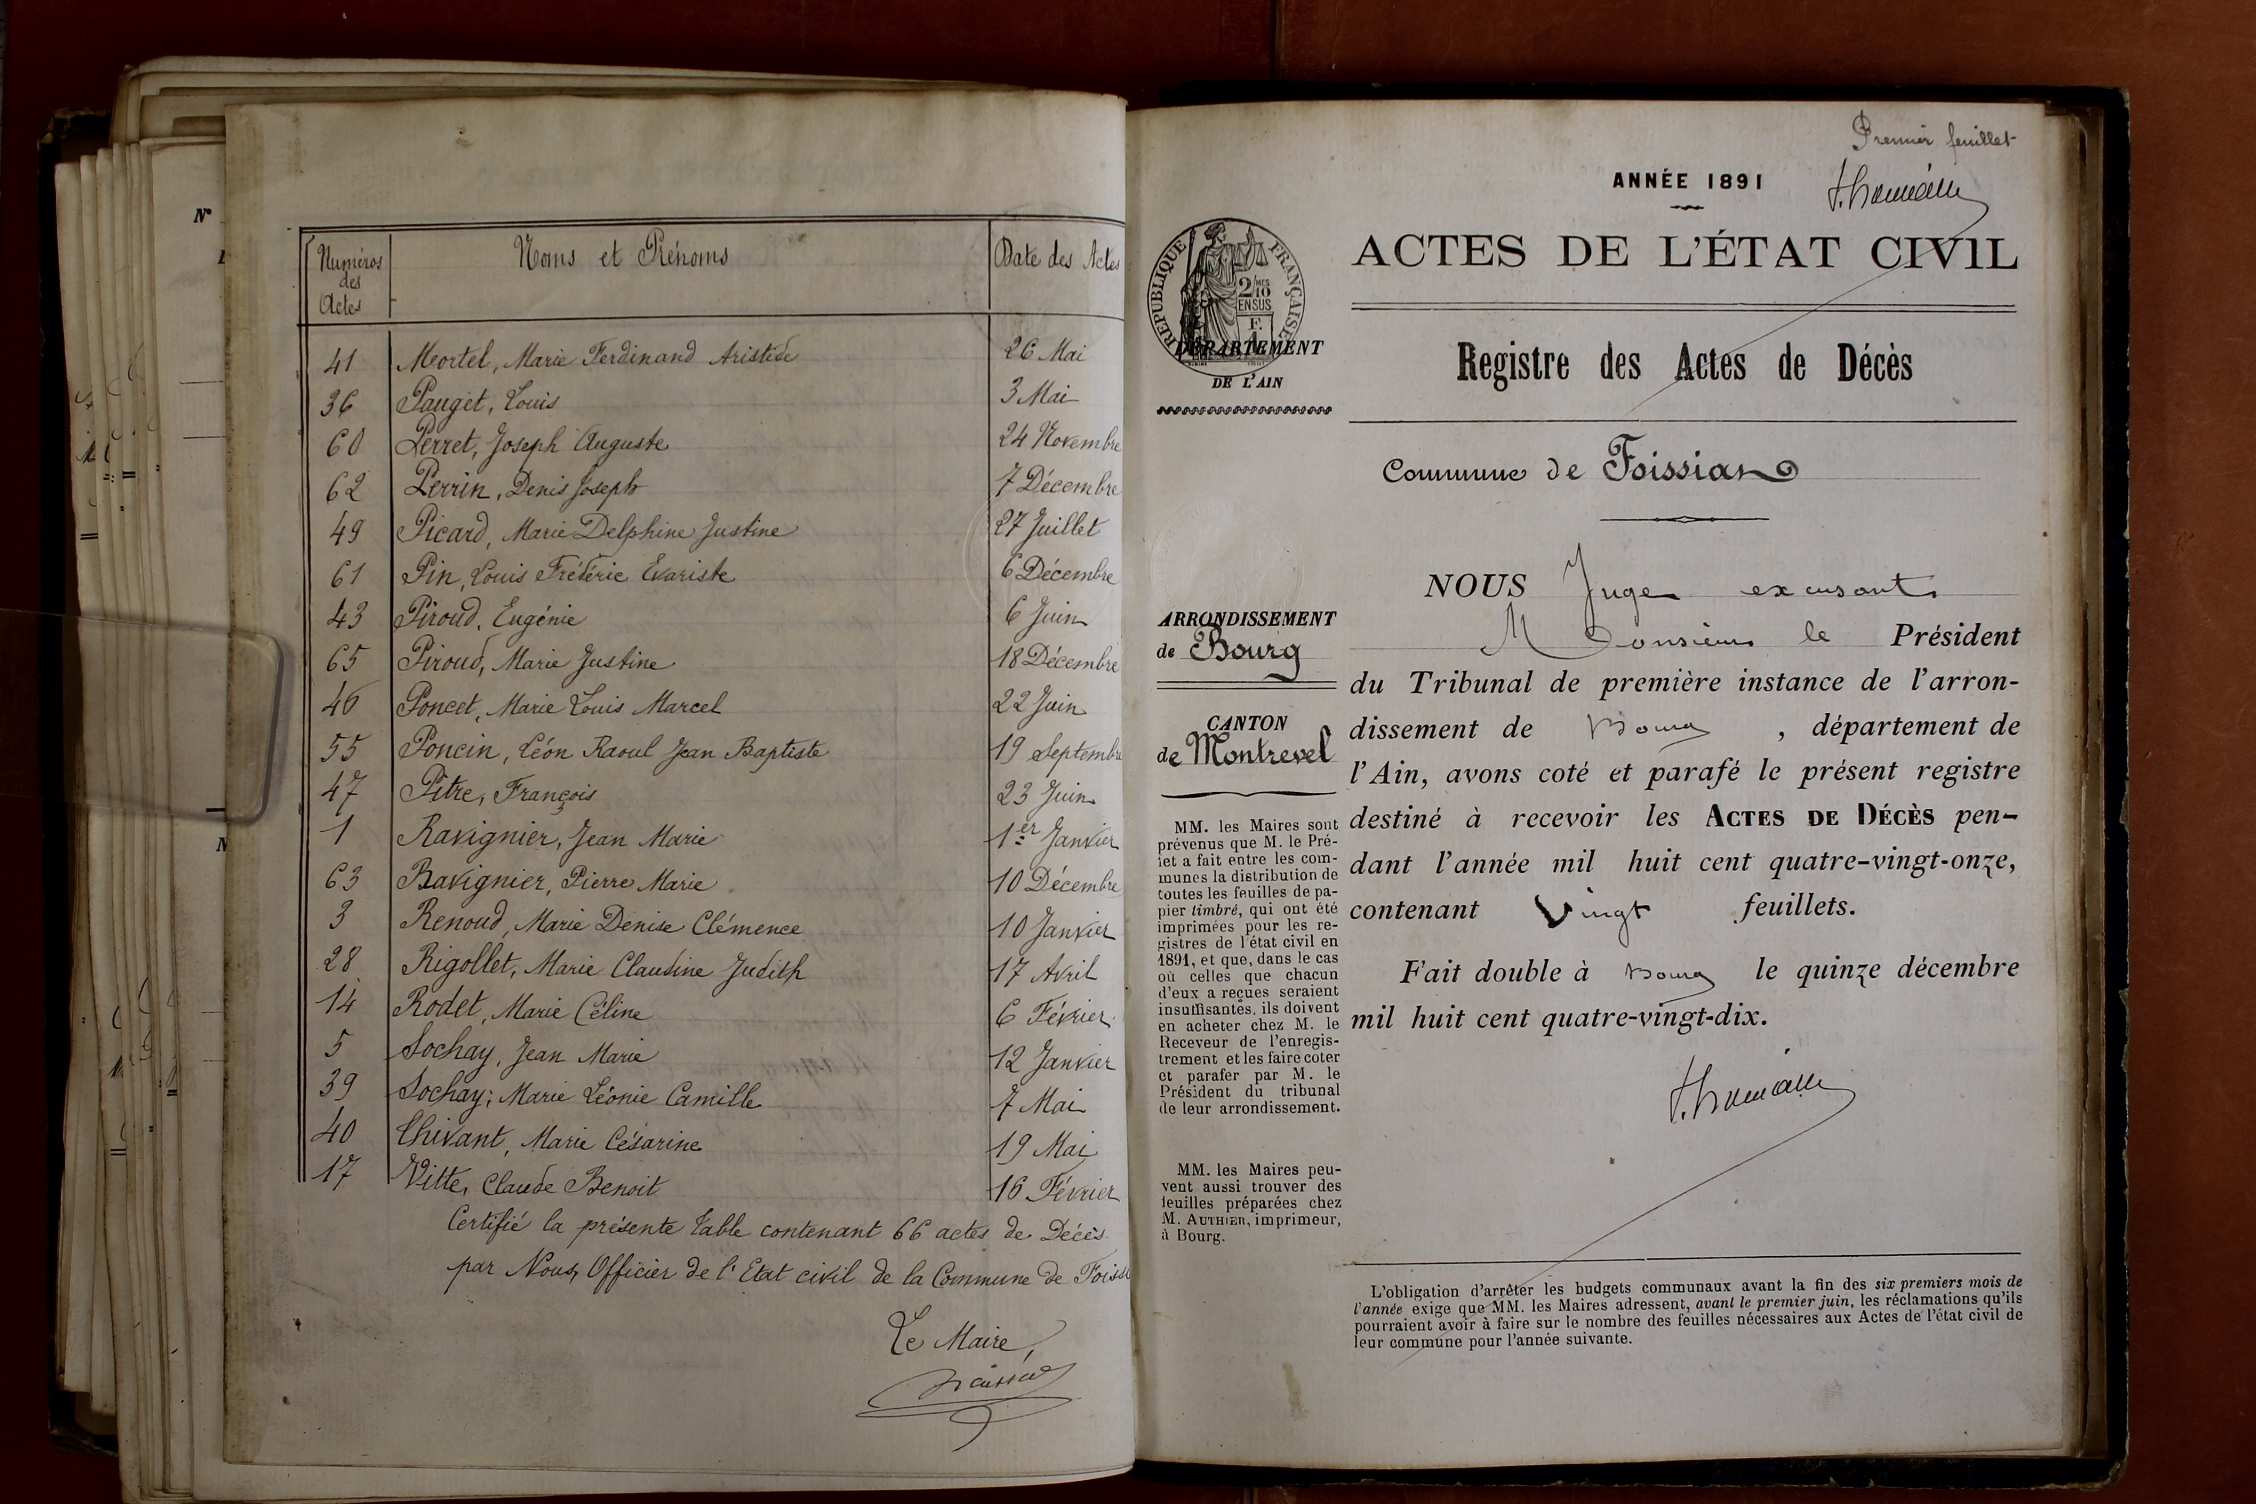 Numéros des Actes
Noms et Prénoms
Date des Actes
41 Mortel, Marie Ferdinand Aristide 26 Mai
36 Pauget, Louis 3 Mai
60 Perret, Joseph Auguste 24 Novembre
62 Perrin, Denis Joseph 7 Décembre
49 Picard, Marie Delphine Justine 27 Juillet
61 Pin, Louis Frédéric Evariste 6 Décembre
43 Piroud, Eugénie 6 Juin
65 Piroud, Marie Justine 18 Décembre
46 Poncet, Marie Louis Marcel 22 Juin
55 Poncin, Léon Raoul Jean Baptiste 19 Septembre
47 Pitre, François 23 Juin
1 Ravignier, Jean Marie 1er Janvier
63 Ravignier, Pierre Marie 10 Décembre
3 Renoud, Marie Denise Clémence 10 Janvier
28 Rigollet, Marie Claudine Judith 17 Avril
14 Rodet, Marie Céline 6 Février
5 Sochay, Jean Marie 12 Janvier
39 Sochay, Marie Léonie Camille 7 Mai
40 Thivant, Marie Césarine 19 Mai
17 Vitte, Claude Benoit 16 Février
Certifié la présente table contenant 66 actes de Décès
par Nous, Officier de l'Etat civil de la Commune de Foiss
Le Maire,
Premier feuillet
ANNÉE 1891
ACTES DE L'ÉTAT CIVIL
RÉPUBLIQUE FRANÇAISE
2/10 MES
EN SUS
DÉPARTEMENT
DE L'AIN
Registre des Actes de Décès
Commune de Foissiat
ARRONDISSEMENT
de Bourg
CANTON
de Montrevel
MM. les Maires sont
prévenus que M. le Pré-
fet a fait entre les com-
munes la distribution de
toutes les feuilles de pa-
pier timbré, qui ont été
imprimées pour les re-
gistres de l'état civil en
1891, et que, dans le cas
où celles que chacun
d'eux a reçues seraient
insuffisantes, ils doivent
en acheter chez M. le
Receveur de l'enregis-
trement et les faire coter
et parafer par M. le
Président du tribunal
de leur arrondissement.
MM. les Maires peu-
vent aussi trouver des
feuilles préparées chez
M. AUTHIER, imprimeur,
à Bourg.
NOUS Juge excusant
Monsieur le Président
du Tribunal de première instance de l'arron-
dissement de Bourg , département de
l'Ain, avons coté et parafé le présent registre
destiné à recevoir les ACTES DE DÉCÈS pen-
dant l'année mil huit cent quatre-vingt-onze,
contenant Vingt feuillets.
Fait double à Bourg le quinze décembre
mil huit cent quatre-vingt-dix.
L'obligation d'arrêter les budgets communaux avant la fin des six premiers mois de
l'année exige que MM. les Maires adressent, avant le premier juin, les réclamations qu'ils
pourraient avoir à faire sur le nombre des feuilles nécessaires aux Actes de l'état civil de
leur commune pour l'année suivante.